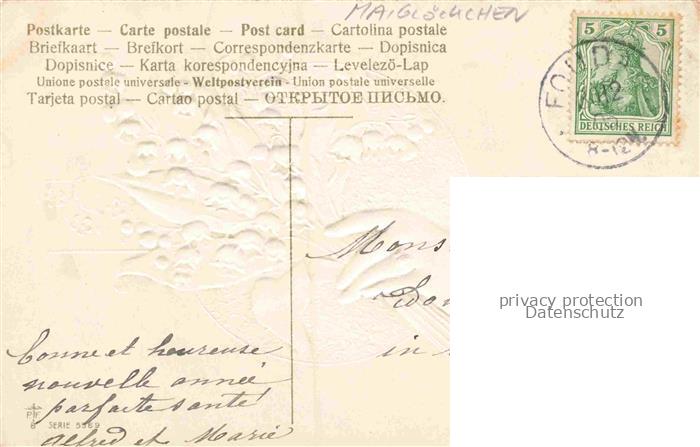 MAIGLÖCKCHEN
Postkarte — Carte postale — Post card — Cartolina postale
Briefkaart — Brefkort — Correspondenzkarte — Dopisnica
Dopisnice — Karta korespondencyjna — Levelező-Lap
Unione postale universale - Weltpostverein - Union postale universelle
Tarjeta postal — Cartao postal — ОТКРЫТОЕ ПИСЬМО.
5 5
DEUTSCHES REICH
8-12
Mons
in
privacy protection
Datenschutz
Bonne et heureuse
nouvelle année
parfaite santé
Alfred et Marie
PF
6 SERIE 5569